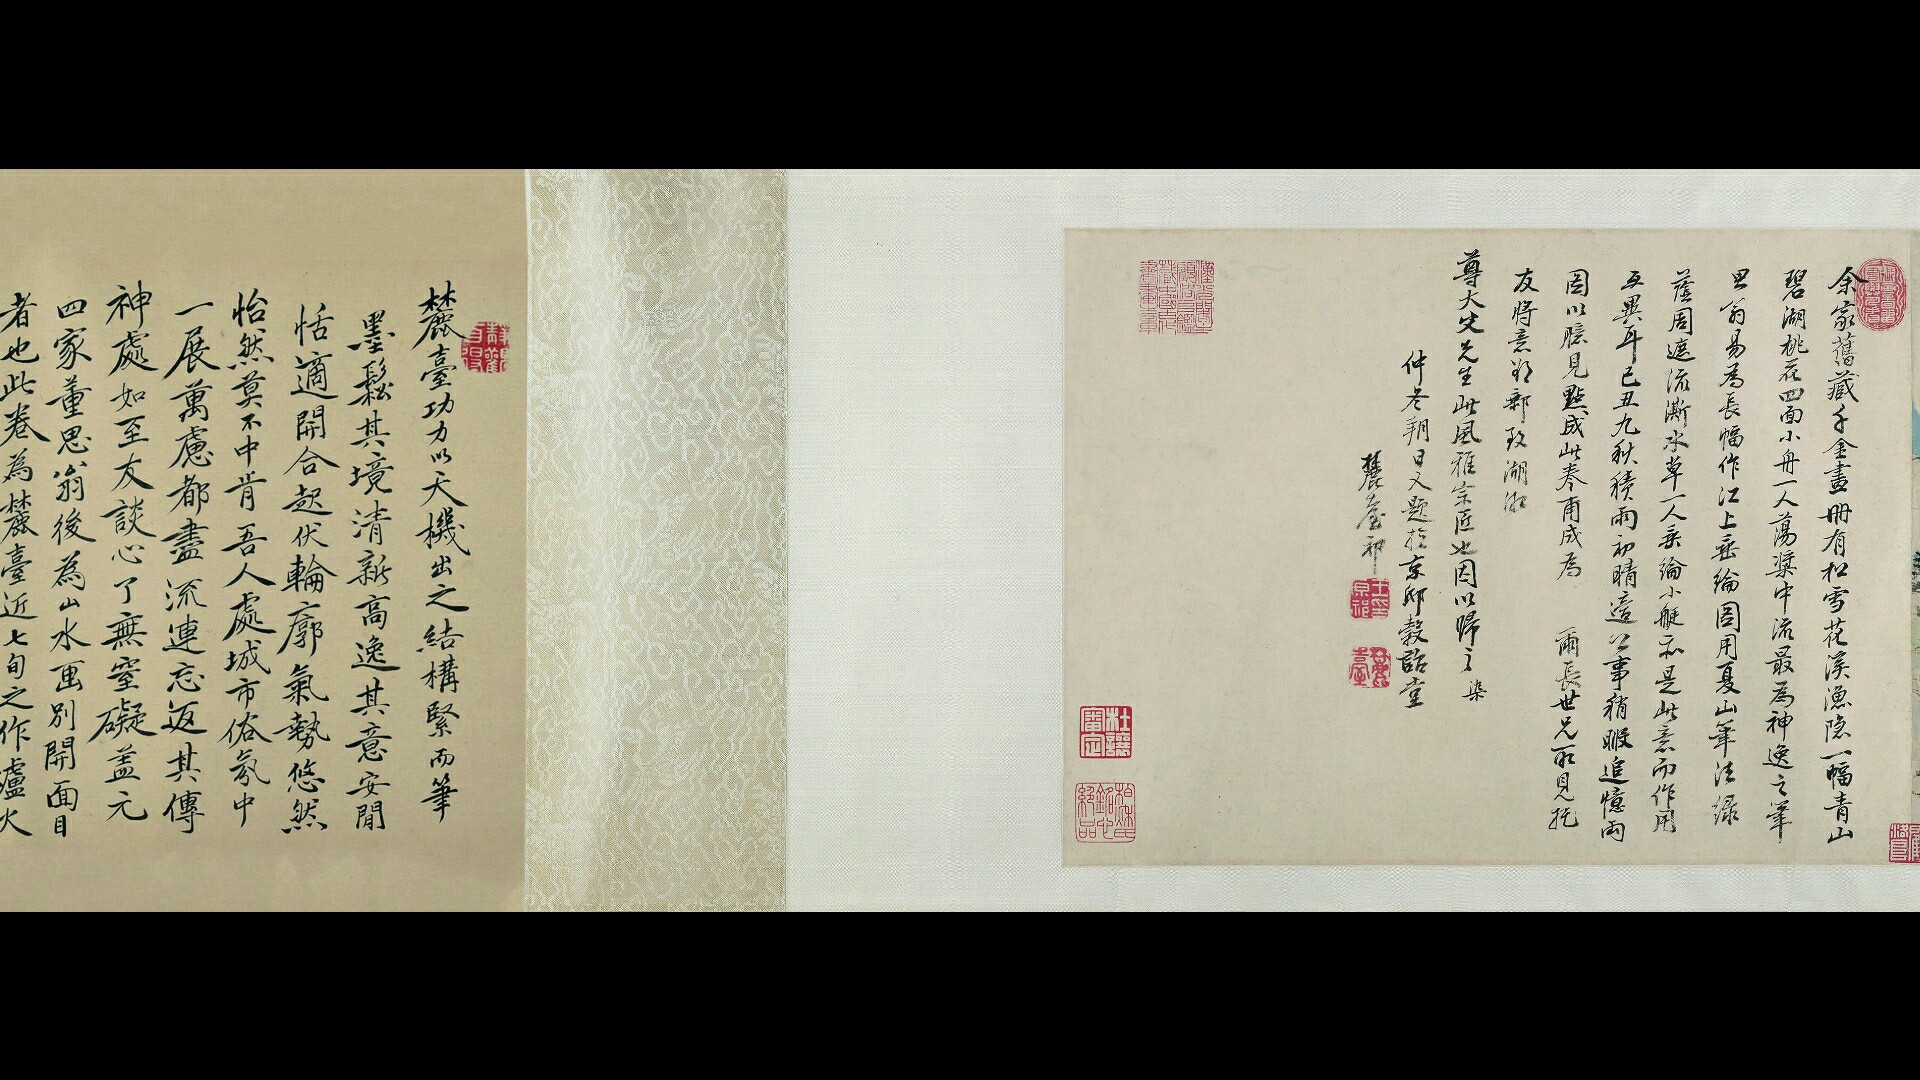 余家舊藏千金畫冊有松雪花溪漁隐一幅青山
碧湖桃花四面小舟一人蕩槳中流最為神逸之筆
思翁易為長幅作江上垂綸圖用夏山筆法綠
蔭周遮流澌水草一人垂綸小艇亦是此意而作用
互異耳己丑九秋積雨初晴適公事稍暇追憶兩
圖以臆見點成此卷甫成為 爾長世兄所見托
友將意郵致湖
尊大父先生此風雅宗匠也因以歸之
仲冬朔日又題於京邸穀詒堂
麓臺祁
麓臺功力以天機出之結構緊而筆
墨鬆其境清新高逸其意安閒
恬適開合起伏輪廓氣勢悠然
怡然莫不中肯吾人處城市俗氛中
一展萬慮都盡流連忘返其傳
神處如至友談心了無窒礙蓋元
四家董思翁後為山水画別開面目
者也此卷為麓臺近七旬之作爐火